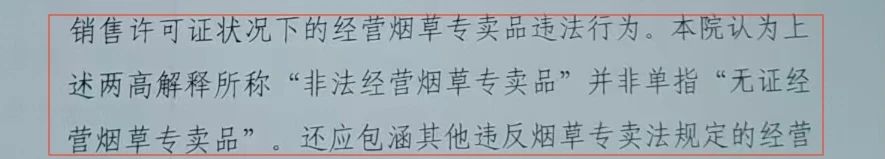 销售许可证状况下的经营烟草专卖品违法行为。本院认为上
述两高解释所称“非法经营烟草专卖品”并非单指“无证经
营烟草专卖品”。还应包涵其他违反烟草专卖法规定的经营